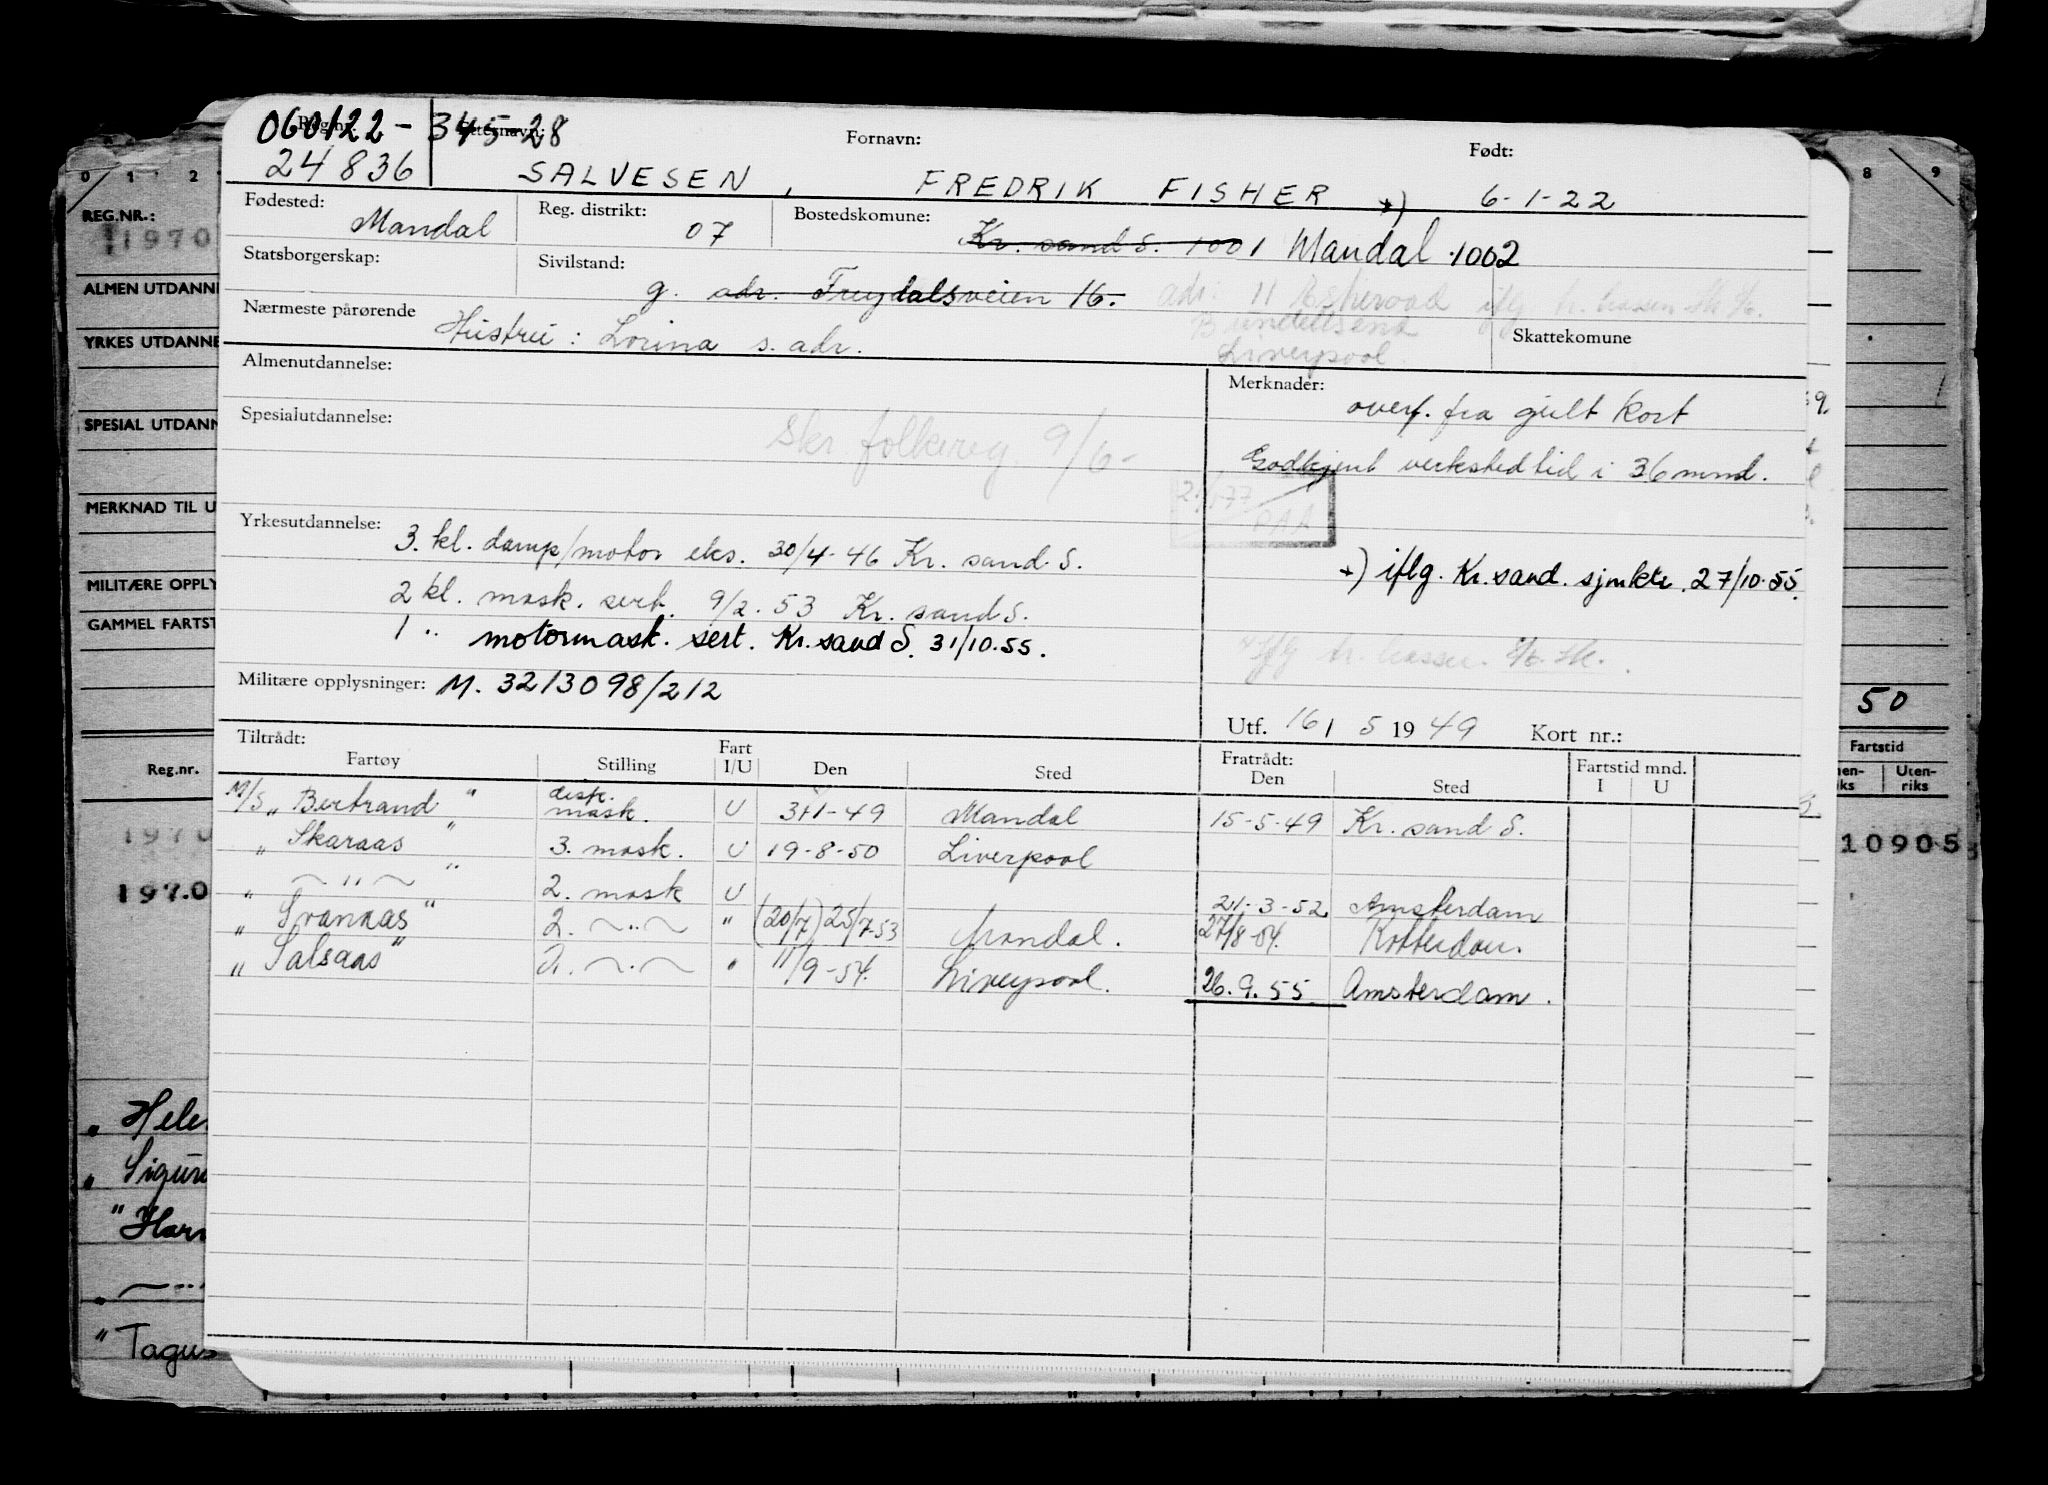 060122-345-28
Reg.nr. Etternavn: Fornavn: Født:
24836 SALVESEN, FREDRIK FISHER *) 6-1-22
Fødested: Mandal Reg. distrikt: 07 Bostedskomune: Kr. sand S. 1001 Mandal 1002
Statsborgerskap: Sivilstand: g. adr. Frydalsveien 16. adr. 11
Nærmeste pårørende Hustru: Lorina s. adr. Skattekomune
Liverpool
Almenutdannelse: Merknader:
overf. fra gult kort
Spesialutdannelse: Skr. folkereg. 9/6-
Godkjent verkstedtid i 36 mnd.
Yrkesutdannelse: 3. kl. damp/motor eks. 30/4-46 Kr. sand. S.
*) iflg. Kr.sand. sjmktr. 27/10-55.
2 kl. mask. sert. 9/2.53 Kr. sand S.
1 " motormask. sert. Kr.sand S. 31/10.55.
Militære opplysninger: M. 3213098/212
Utf. 16/ 5 1949 Kort nr.:
Tiltrådt: Fratrådt:
Fartøy Stilling Fart I/U Den Sted Den Sted Fartstid mnd. I U
M/S "Bertrand" mask. U 3/1-49 Mandal 15-5-49 Kr. sand S.
" Skaraas " 3. mask. U 19-8-50 Liverpool
" ~ " ~ " 2. mask U 21-3-52 Amsterdam
" Svanaas" 2. ~ " ~ " (20/7) 25/7-53 Mandal. 27/8-54. Rotterdam.
" Salsaas" 2. ~ " ~ " 11/9-54. Liverpool. 26.9.55 Amsterdam.
0 1 2
REG.NR.:
1970
ALMEN UTDANNE
YRKES UTDANNE
SPESIAL UTDANN
MERKNAD TIL U
MILITÆRE OPPLY
GAMMEL FARTST
Reg.nr.
1970
1970
" Hele
" Sigur
" Har
" Tagus
8 9
50
Fartstid
nen-
iks
Uten-
riks
10905